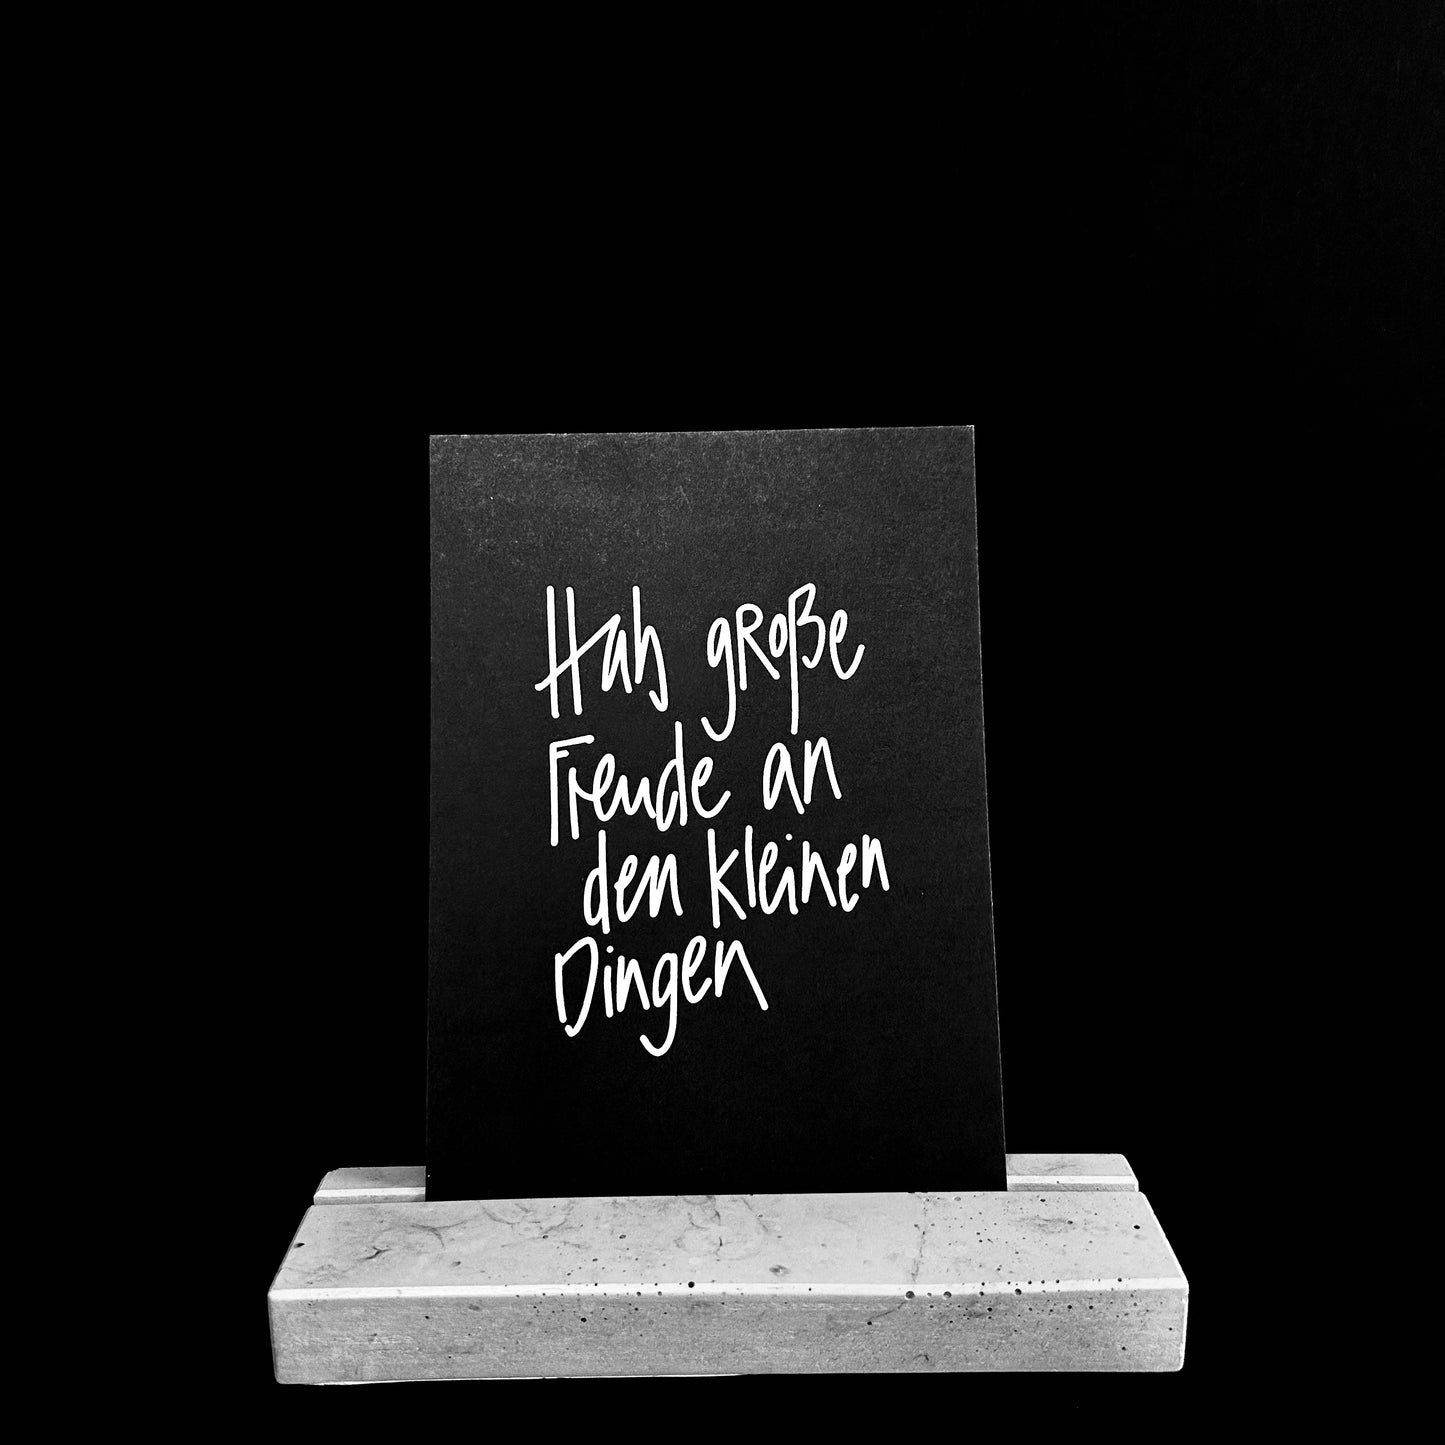 Hab große
Freude an
den kleinen
Dingen